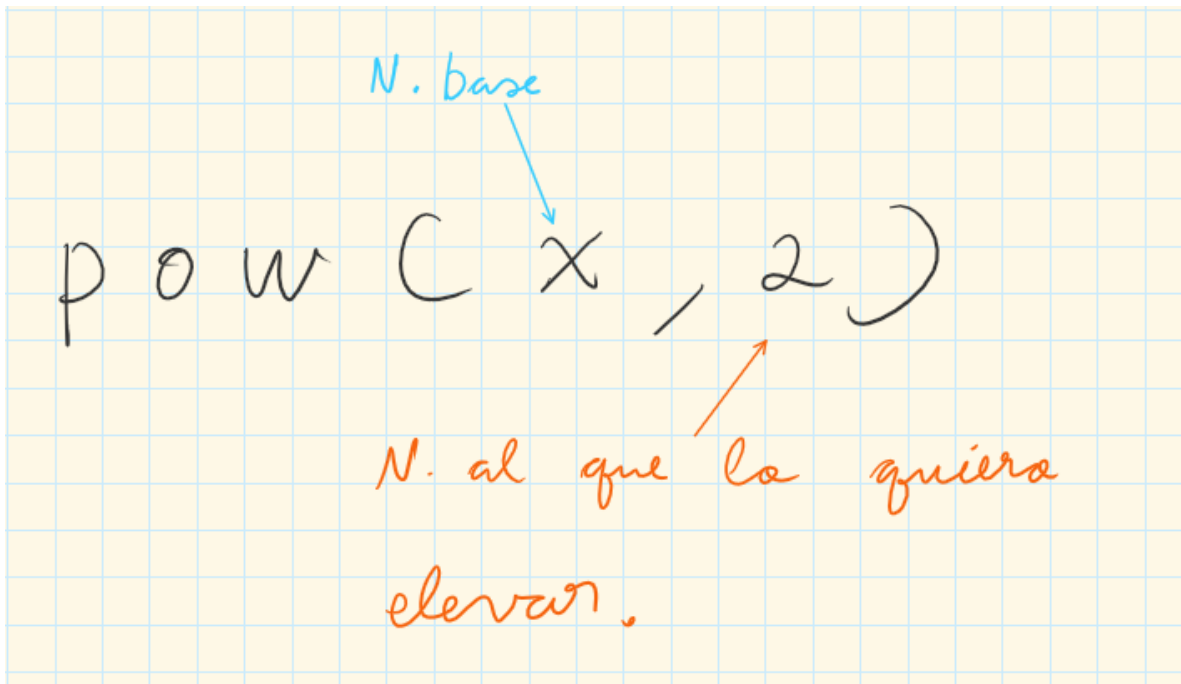 N. base
pow ( x , 2 )
N. al que lo quiero
elevar.